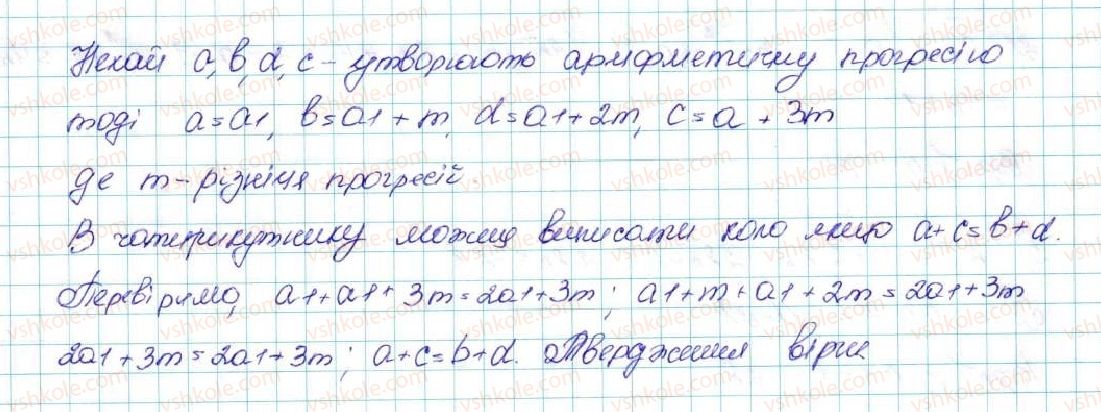 Нехай a, b, d, c - утворюють арифметичну прогресію
тоді a = a1, b = a1 + m, d = a1 + 2m, c = a + 3m
де m - різниця прогресії.
В чотирикутнику можна вписати коло якщо a + c = b + d.
Перевіримо, a1 + a1 + 3m = 2a1 + 3m; a1 + m + a1 + 2m = 2a1 + 3m
2a1 + 3m = 2a1 + 3m; a + c = b + d. Твердження вірне